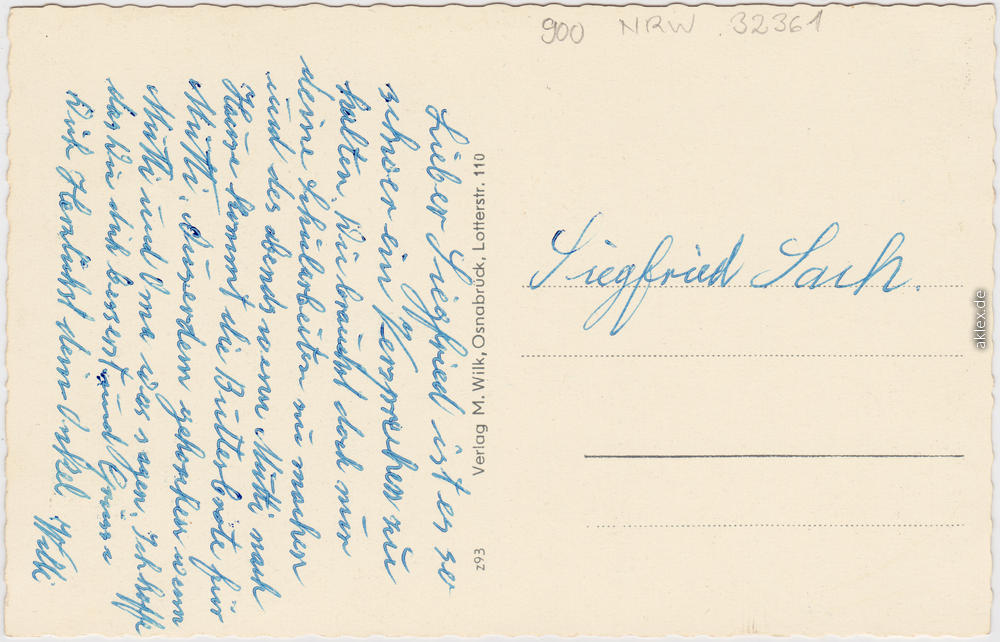 900 NRW 32361
Lieber Siegfried ist es so
schwer ein Versprechen zu
halten. Du brauchst doch nur
deine Schularbeiten zu machen
und des abends wenn Mutti nach
Hause kommt die Butterbrote für
Mutti. Ausserdem gehorchen wenn
Mutti und Oma was sagen. Ich hoffe
das du dich besserst und Grüsse
dich Herzlichst dein Onkel Willi
Verlag M. Wilk, Osnabrück, Lotterstr. 110
z93
Siegfried Sach.
aklex.de